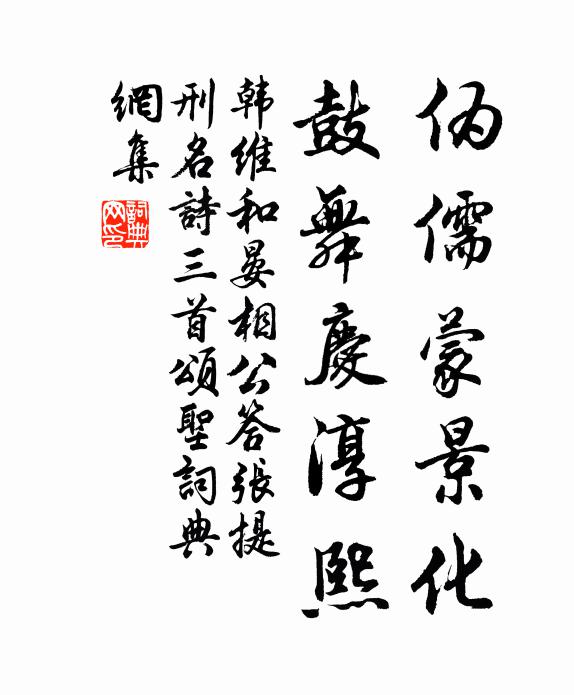 偽儒蒙景化
鼓舞慶淳熙
韩維和晏相公答張提
刑名詩三首頌聖詞典
網集
詞典网印